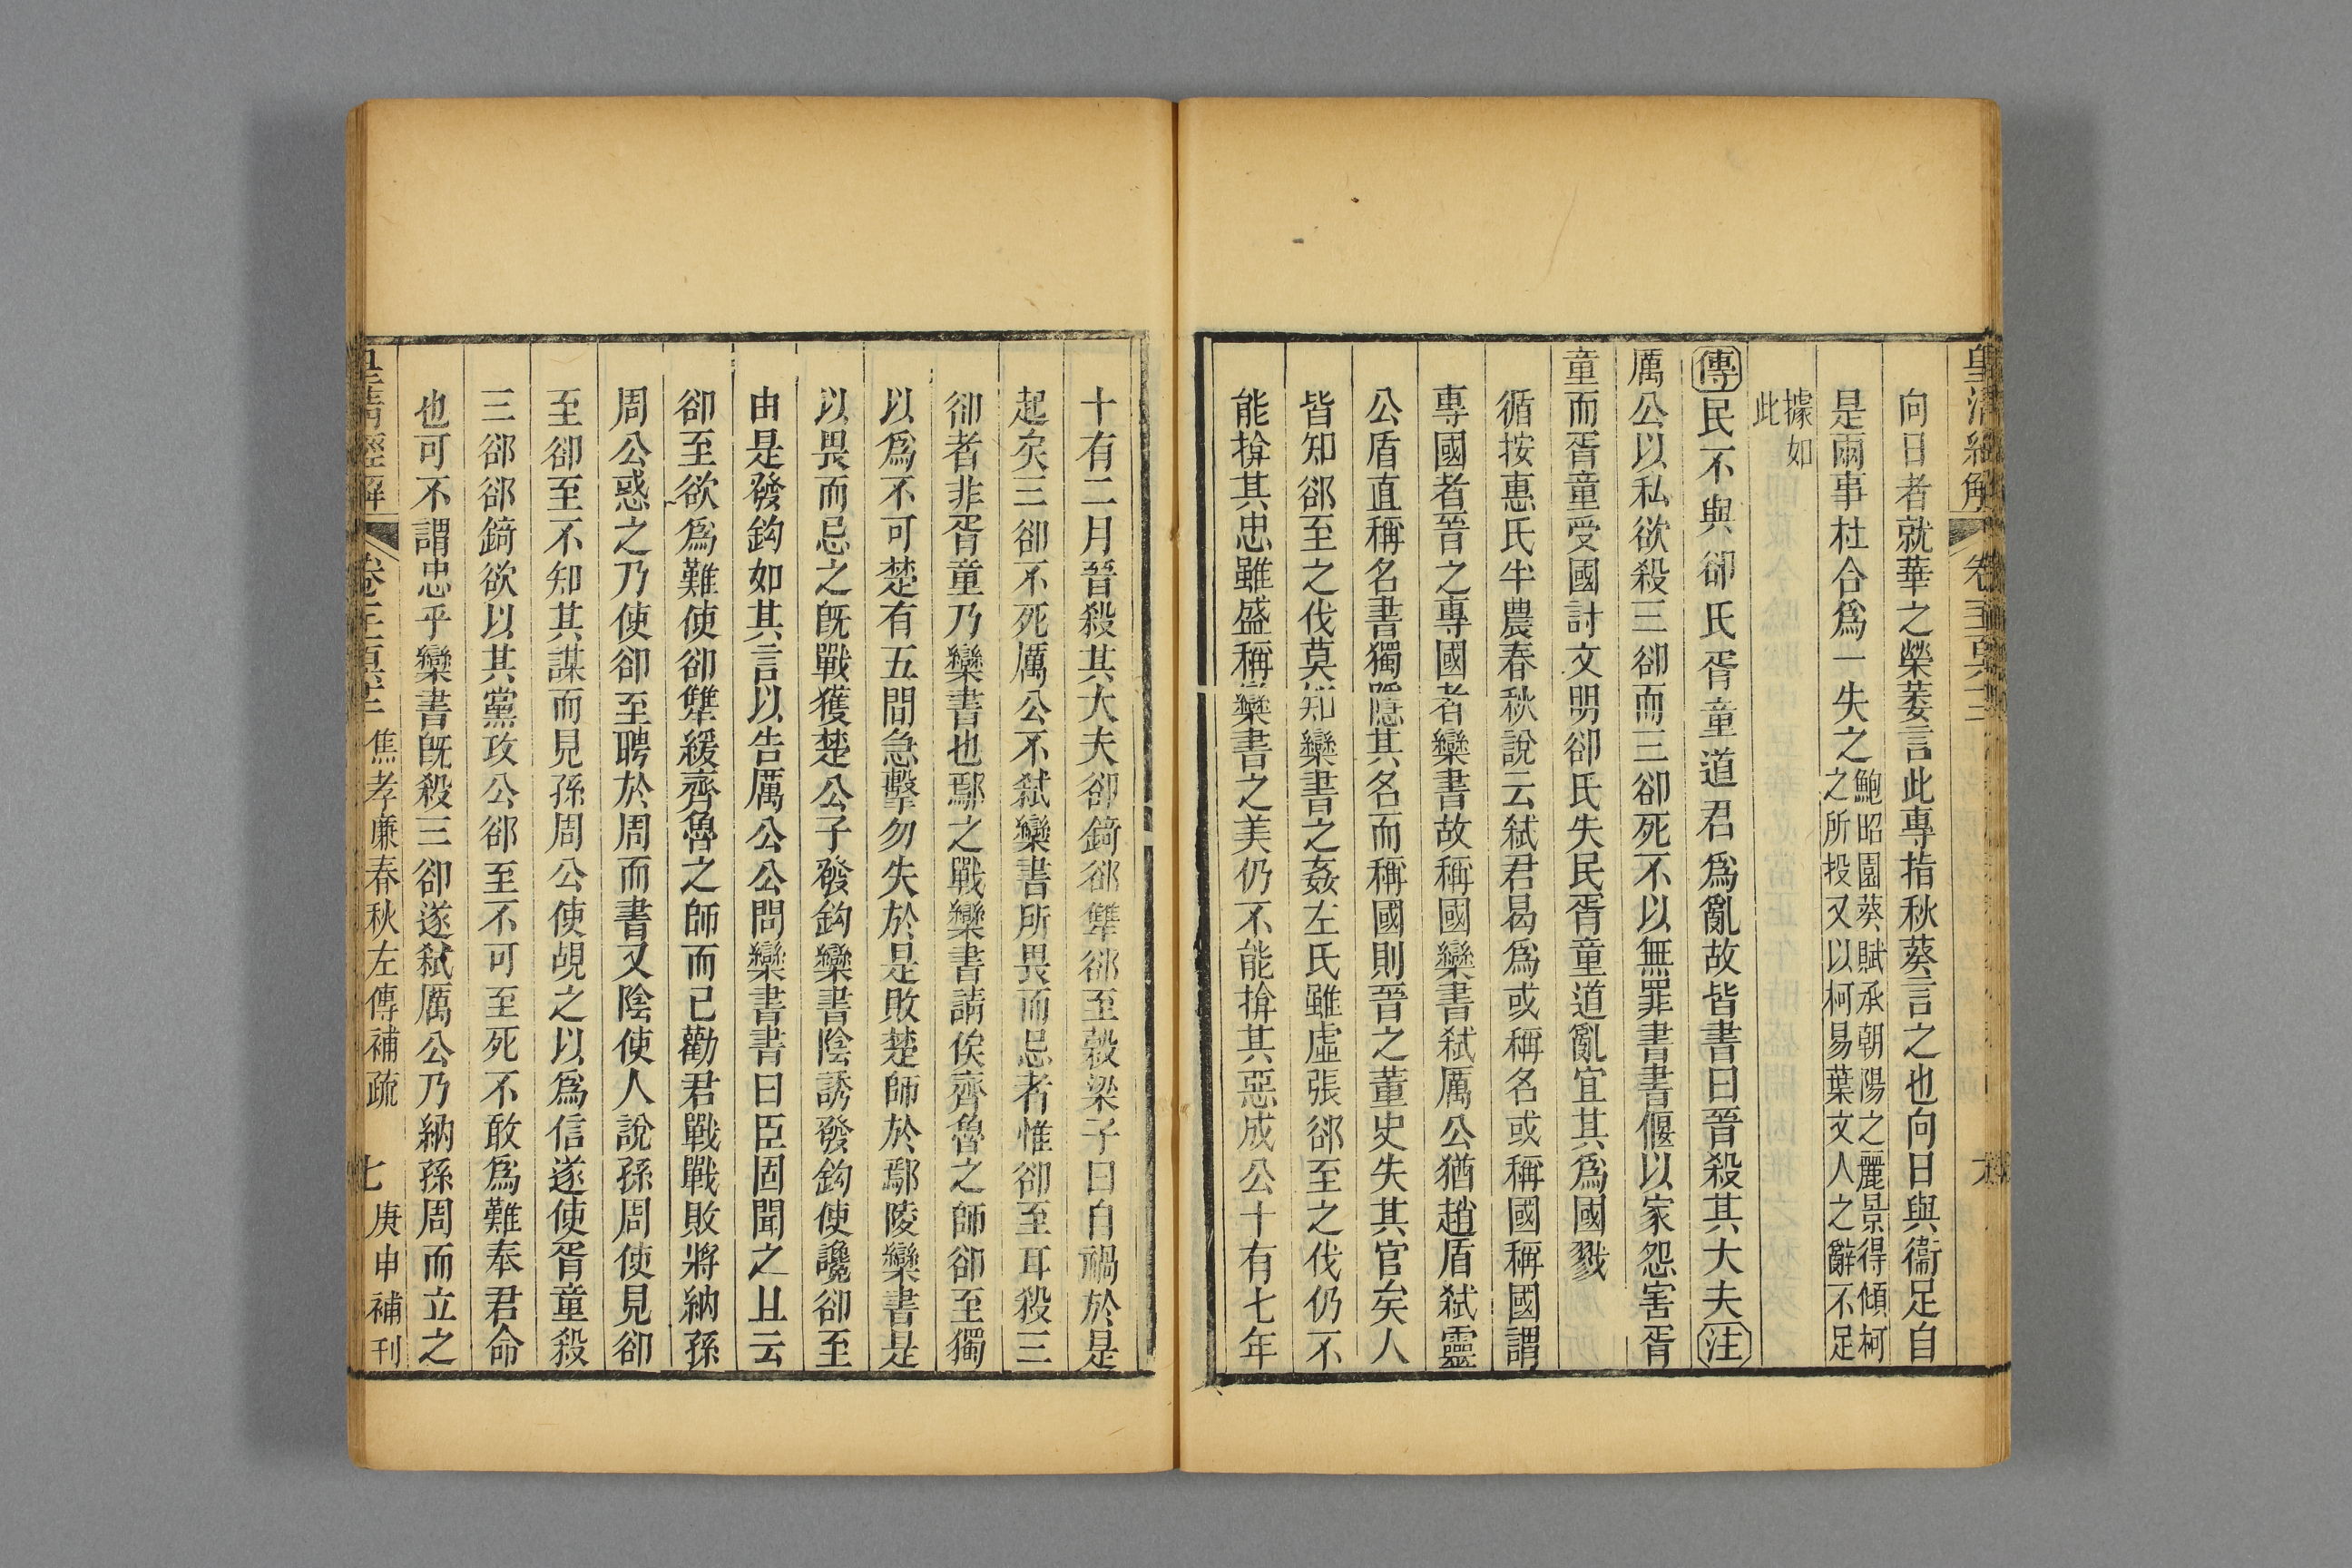 皇清經解 卷
向日者就華之榮萎言此專指秋葵言之也向日與衞足自
是兩事杜合爲一失之鮑昭園葵賦承朝陽之麗景得傾柯
之所投又以柯易葉文人之辭不足
據如
此
傳民不與郤氏胥童道君爲亂故皆書曰晉殺其大夫注
厲公以私欲殺三郤而三郤死不以無罪書書偃以家怨害胥
童而胥童受國討文明郤氏失民胥童道亂宜其爲國戮
循按惠氏半農春秋說云弑君曷爲或稱名或稱國稱國謂
專國者晉之專國者欒書故稱國欒書弑厲公猶趙盾弑靈
公盾直稱名書獨隱其名而稱國則晉之董史失其官矣人
皆知郤至之伐莫知欒書之姦左氏雖虛張郤至之伐仍不
能揜其忠雖盛稱欒書之美仍不能揜其惡成公十有七年
十有二月晉殺其大夫郤錡郤犨郤至穀梁子曰自禍於是
起矣三郤不死厲公不弑欒書所畏而忌者惟郤至耳殺三
郤者非胥童乃欒書也鄢之戰欒書請俟齊魯之師郤至獨
以爲不可楚有五間急擊勿失於是敗楚師於鄢陵欒書是
以畏而忌之旣戰獲楚公子發鈎欒書陰誘發鈎使讒郤至
由是發鈎如其言以告厲公公問欒書書曰臣固聞之且云
郤至欲爲難使郤犨緩齊魯之師而已勸君戰戰敗將納孫
周公惑之乃使郤至聘於周而書又陰使人說孫周使見郤
至郤至不知其謀而見孫周公使覘之以爲信遂使胥童殺
三郤郤錡欲以其黨攻公郤至不可至死不敢爲難奉君命
也可不謂忠乎欒書旣殺三郤遂弑厲公乃納孫周而立之
皇清經解 卷 焦孝廉春秋左傳補疏 七 庚申補刊